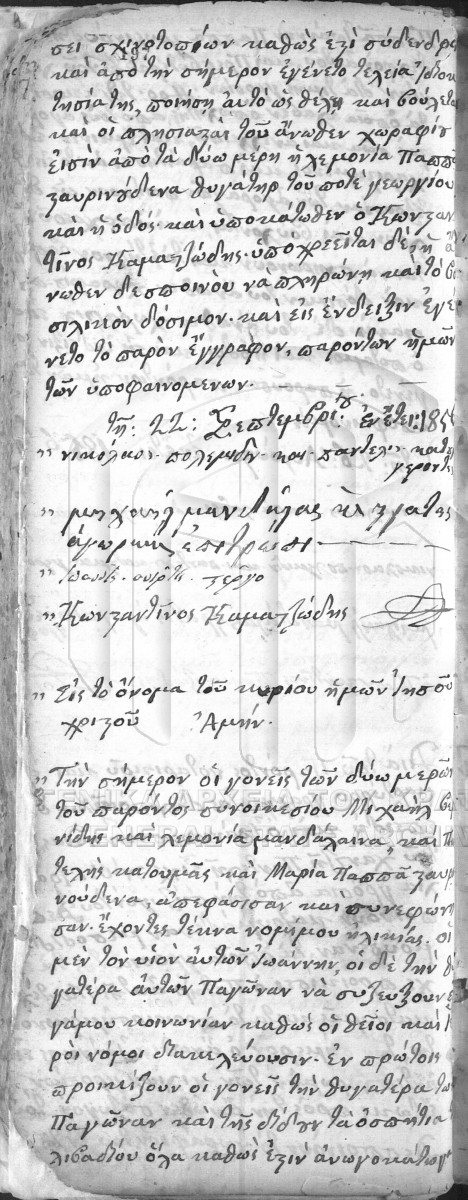 σει σχινοτοπίων καθὼς ἐςὶ σύδενδρο
καὶ ἀπὸ τὴν σήμερον ἐγένετο τελεία ἰδιοκ
τησία της, ποιήση αὐτὸ ὡς θέλει καὶ βούλεται
καὶ οἱ πλησιαςαὶ τοῦ ἄνωθεν χωραφίȣ
εἰσὶν ἀπὸ τὰ δύω μέρη ἡ λεμονιὰ Παππᾶ
ζαυρινȣδενα θυγάτηρ τοῦ ποτὲ γεωργίου
καὶ ἡ ὁδός· καὶ ὑποκάτωθεν ὁ Κωνςαν
τῖνος Καματζώδης· ὑπόχρεεῖται δὲ ἡ ἄ
νωθεν δεσποινοὺ νὰ πληρώνη καὶ τὸ βα
σιλικὸν δόσιμον· καὶ εἰς ἔνδειξιν ἐγέ
νετο τὸ παρὸν ἔγγραφον, παρόντων ἡμῶν
τῶν ὑποφαινομενων·
τῇ: 22: Σεπτεμβρίου: ἐν ἔτει: 185
νικόλαος πολεμιδη· και παντελι· κατου
γεροντες
μηχαηλ μανιτηλας
Κωνςαντῖνος Καματζώδης
Εἰς τὸ ὄνομα τοῦ κυρίου ἡμῶν Ἰησοῦ
χριςοῦ Ἀμήν·
Τὴν σήμερον οἱ γονεῖς τῶν δύω μερῶν
τοῦ παρόντος συνοικεσίου Μιχαὴλ
νίδης καὶ λεμονία μανδάλαινα, καὶ Π
τελῆς κατουμᾶς καὶ Μαρία Παππᾶ ζαυρι
νούδενα, ἀπεφάσισαν καὶ συνεφώνη
σαν· ἔχοντες τέκνα νομίμου ἡλικίας· οἱ
μὲν τὸν υἱὸν αὐτῶν Ἰωάννην, οἱ δὲ τὴν θυ
γατέρα αὐτῶν Παγῶναν νὰ συζεύξουν ε
γάμου κοινωνίαν καθὼς οἱ θεῖοι καὶ ἱε
ροὶ νόμοι διακελεύουσιν· ἐν πρώτοις
προικίζουν οἱ γονεῖς τὴν θυγατέρα τω
Παγῶναν καὶ τῆς δίδȣν τὰ ὁσπήτια
λιβαδίου ὅλα καθὼς ἐςὶν ἀνωγοκάτωγα